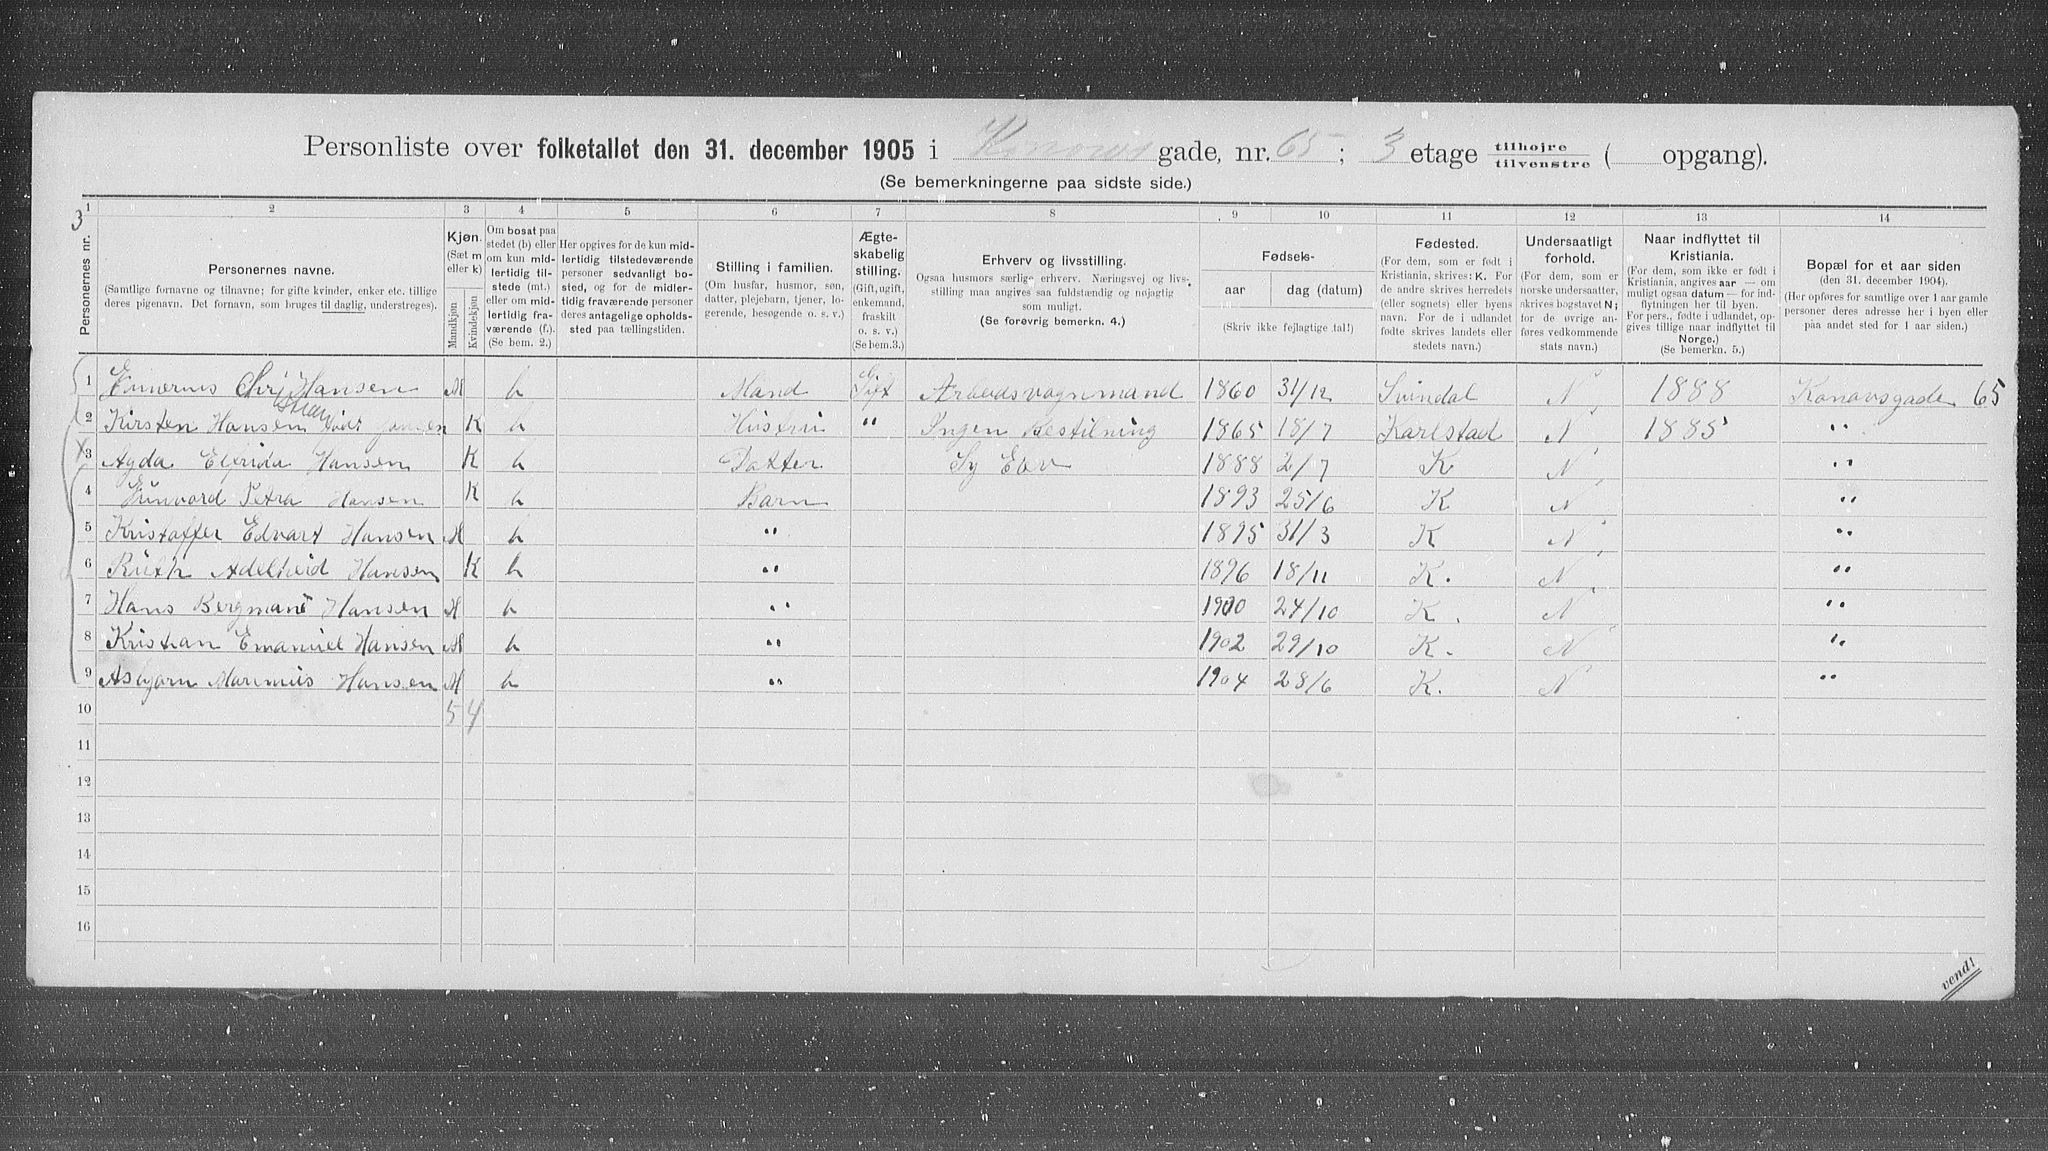 Personliste over folketallet den 31. december 1905 i Konows gade, nr. 65; 3 etage tilhøjre tilvenstre ( opgang).
(Se bemerkningerne paa sidste side.)
1 2 3 4 5 6 7 8 9 10 11 12 13 14
3
Personernes nr.
Personernes navne.
(Samtlige fornavne og tilnavne; for gifte kvinder, enker etc. tillige deres pigenavn. Det fornavn, som bruges til daglig, understreges).
Kjøn.
(Sæt m eller k)
Mandkjøn
Kvindekjøn
Om bosat paa stedet (b) eller om kun midlertidig tilstede (mt.) eller om midlertidig fraværende (f.). (Se bem. 2.)
Her opgives for de kun midlertidig tilstedeværende personer sedvanligt bosted, og for de midlertidig fraværende personer deres antagelige opholdssted paa tællingstiden.
Stilling i familien.
(Om husfar, husmor, søn, datter, plejebarn, tjener, logerende, besøgende o. s. v.)
Ægteskabelig stilling.
(Gift, ugift, enkemand, fraskilt o. s. v.)
(Se bem. 3.)
Erhverv og livsstilling.
Ogsaa husmors særlige erhverv. Næringsvej og livsstilling maa angives saa fuldstændig og nøjagtig som muligt.
(Se forøvrig bemerkn. 4.)
Fødsels-
aar
dag (datum)
(Skriv ikke fejlagtige tal!)
Fødested.
(For dem, som er født i Kristiania, skrives: K. For de andre skrives herredets (eller sognets) eller byens navn. For de i udlandet fødte skrives landets eller stedets navn.)
Undersaatligt forhold.
(For dem, som er norske undersaatter, skrives bogstavet N; for de øvrige anføres vedkommende stats navn.)
Naar indflyttet til Kristiania.
(For dem, som ikke er født i Kristiania, angives aar — om muligt ogsaa datum — for indflytningen her til byen. For pers., fødte i udlandet, opgives tillige naar indflyttet til Norge.)
(Se bemerkn. 5.)
Bopæl for et aar siden
(den 31. december 1904.)
(Her opføres for samtlige over 1 aar gamle personer deres adresse her i byen eller paa andet sted for 1 aar siden.)
1 Chri Hansen M b Mand Gift Arbeidsvognmand 1860 31/12 Svindal N 1888 Konovsgade 65
2 Kirsten Hansen født K b Hustru " Ingen Bestilning 1865 18/7 Karlstad N 1885 "
3 Agda Elfrida Hansen K b Datter Sy Elev 1888 2/7 K N "
4 Gunvord Petra Hansen K b Barn 1893 25/6 K N "
5 Kristoffer Edvart Hansen M b " 1895 31/3 K N "
6 Ruth Adelheid Hansen K b " 1896 18/11 K. N "
7 Hans Bergman Hansen M b " 1900 24/10 K. N "
8 Kristian Emanuel Hansen M b " 1902 29/10 K. N "
9 Asbjørn Marinius Hansen M b " 1904 28/6 K. N "
10 5 4
11
12
13
14
15
16
vend!